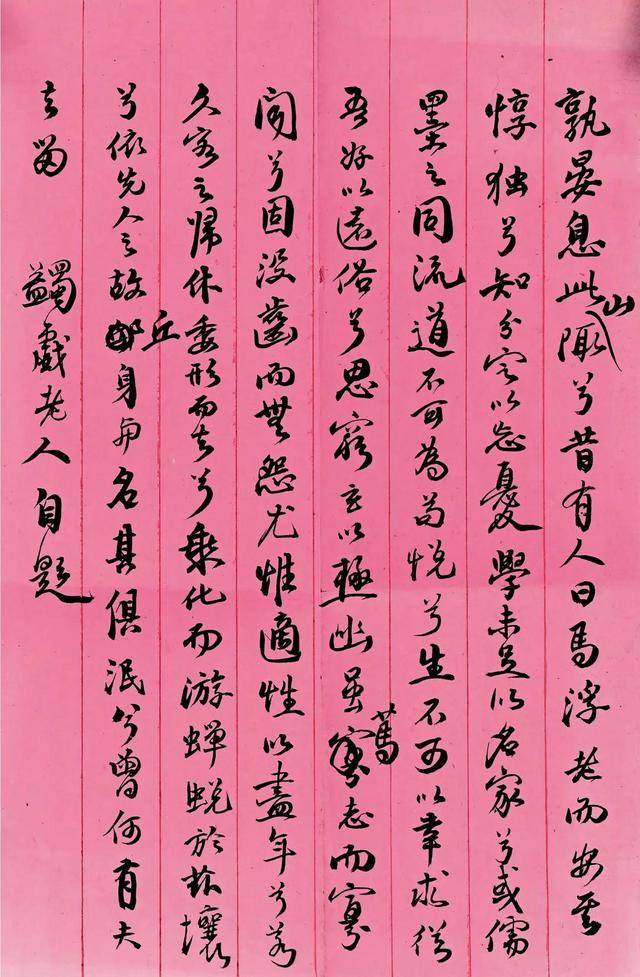 孰晏息此山陬兮昔有人曰馬浮老而安其
惇独兮知分定以忘憂學未足以名家兮或儒
墨之同流道不可為苟悅兮生不可以幸求從
吾好以遠俗兮思窮玄以極幽虽篤志而寡
聞兮固没齒而無怨尤惟適性以盡年兮若
久客之歸休委形而去兮乘化而游蟬蛻於茲壤
兮依先人之故丘身与名其俱泯兮曾何有夫
去留　蠲戲老人自題